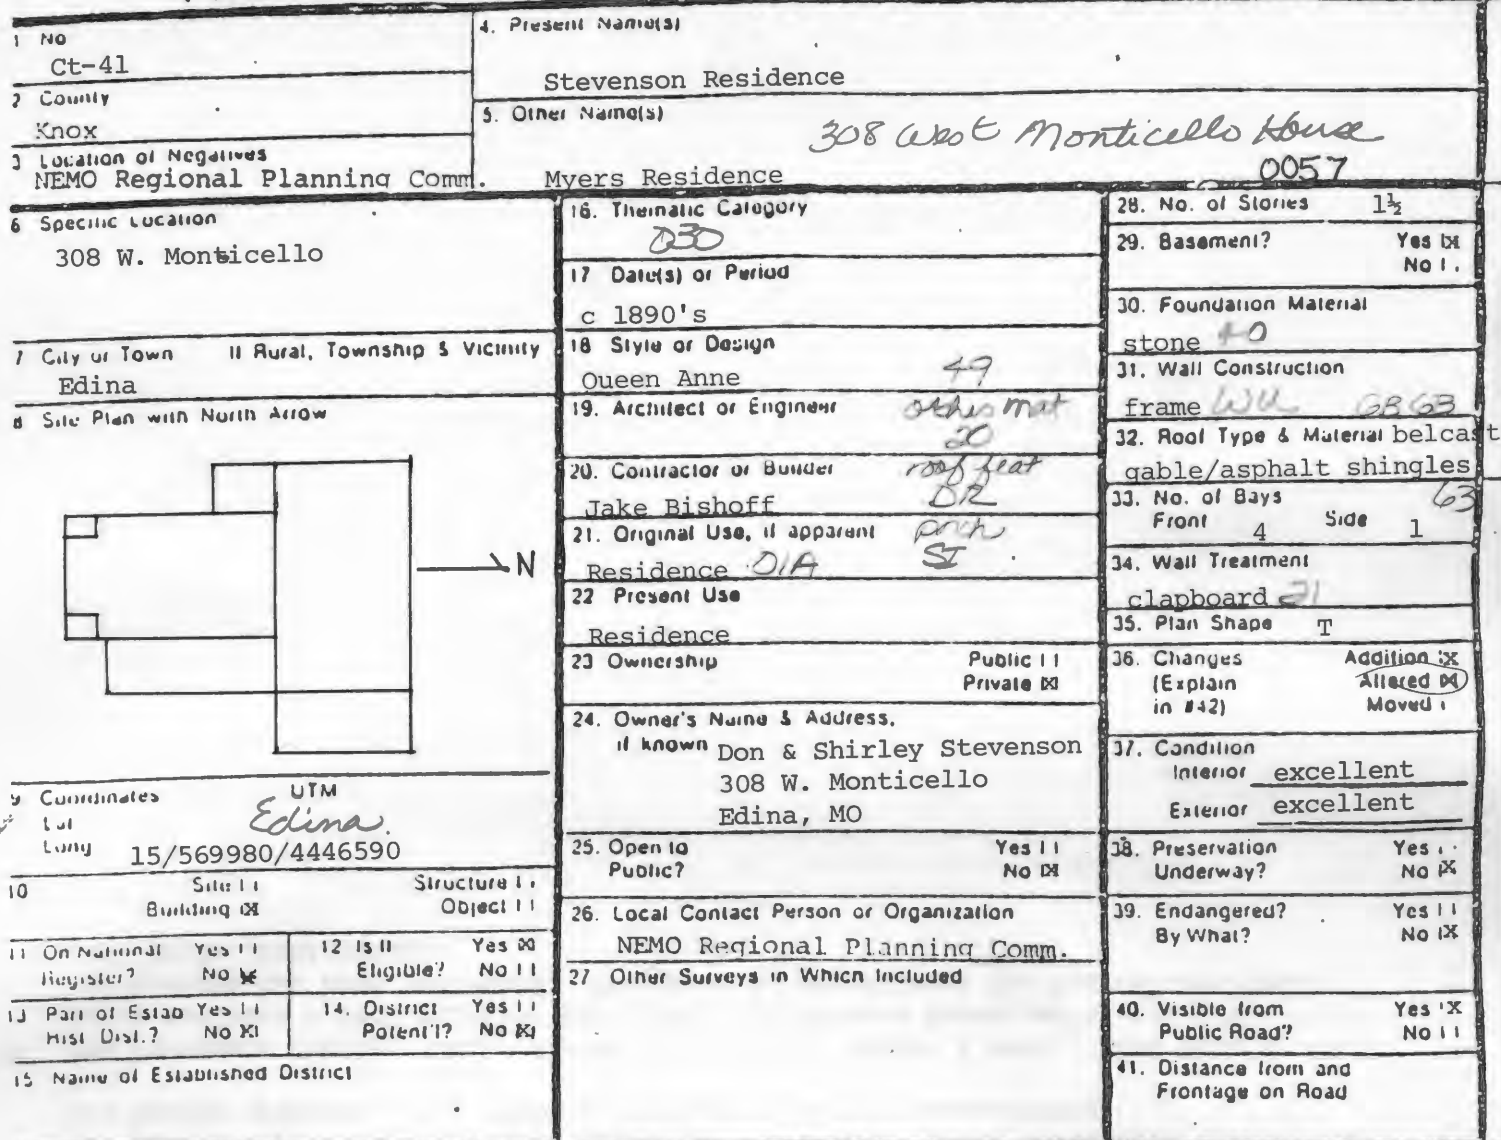 1 No
Ct-41
2 County
Knox
3 Location of Negatives
NEMO Regional Planning Comm.
4. Present Name(s)
Stevenson Residence
5. Other Name(s)
308 West Monticello House
Myers Residence
0057
6 Specific Location
308 W. Monticello
7 City or Town If Rural, Township & Vicinity
Edina
8 Site Plan with North Arrow
N
9 Coordinates UTM
Lat
Long
Edina.
15/569980/4446590
10 Site Structure
Building X Object
11 On National Register? Yes No X
12 Is It Eligible? Yes X No
13 Part of Estab Hist Dist.? Yes No X
14. District Potent'l? Yes No X
15 Name of Established District
16. Thematic Category
030
17 Date(s) or Period
c 1890's
18 Style or Design
Queen Anne 49
19. Architect or Engineer
other mat
20
20. Contractor or Builder
Jake Bishoff
roof feat
DR
21. Original Use, if apparent
Residence 01A
porch
ST
22 Present Use
Residence
23 Ownership Public
Private X
24. Owner's Name & Address,
if known Don & Shirley Stevenson
308 W. Monticello
Edina, MO
25. Open to Yes
Public? No X
26. Local Contact Person or Organization
NEMO Regional Planning Comm.
27 Other Surveys in Which Included
28. No. of Stories 1½
29. Basement? Yes X
No
30. Foundation Material
stone 40
31. Wall Construction
frame
32. Roof Type & Material belcast
gable/asphalt shingles
63
33. No. of Bays
Front 4 Side 1
34. Wall Treatment
clapboard 21
35. Plan Shape T
36. Changes Addition X
(Explain Altered X
in #42) Moved
37. Condition
Interior excellent
Exterior excellent
38. Preservation Yes
Underway? No X
39. Endangered? Yes
By What? No X
40. Visible from Yes X
Public Road? No
41. Distance from and
Frontage on Road